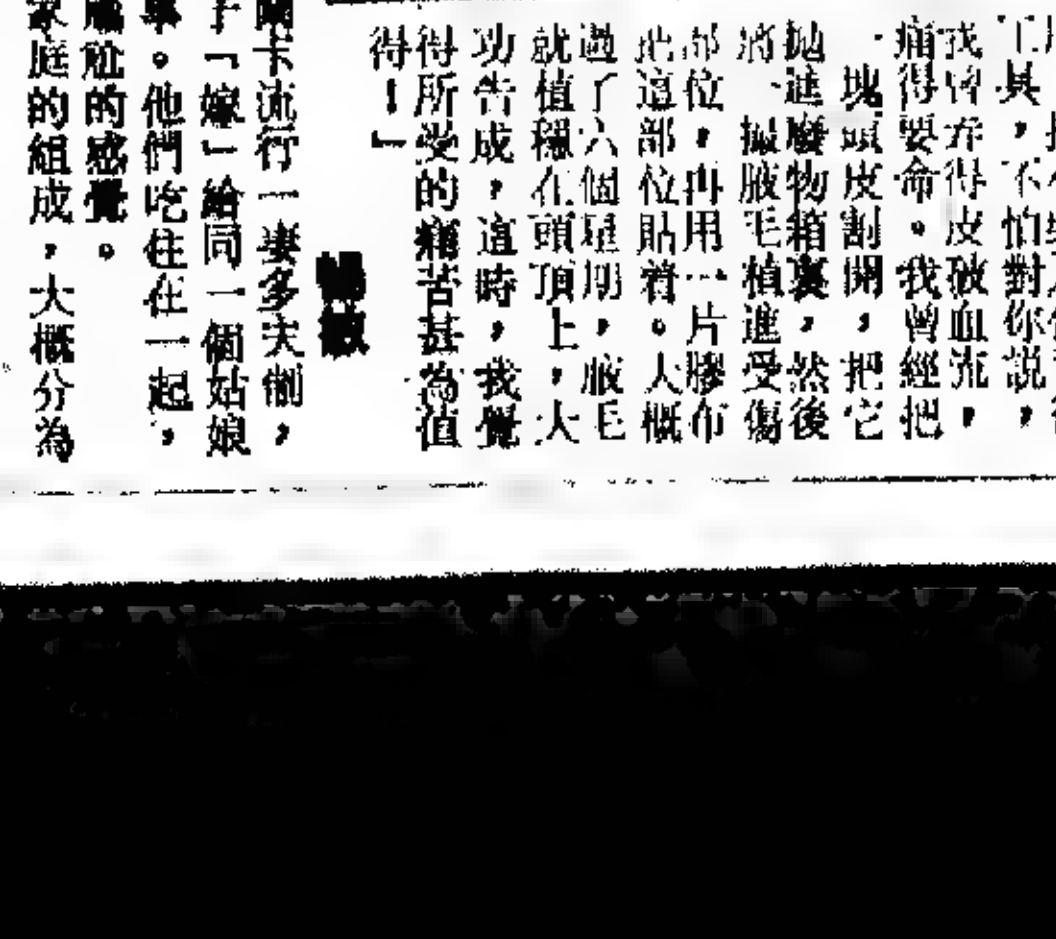 工具，不怕對你説，
我曾弄得皮破血流，
痛得要命。我曾經把
一塊頭皮割開，把它
拋進廢物箱裏，然後
將一撮腋毛植進受傷
部位，再用一片膠布
把這部位貼着。大概
過了六個星期，腋毛
就植穩在頭頂上，大
功告成，這時，我覺
得所受的痛苦甚為值
得！」
蘭卡流行一妻多夫制，
子「嫁」給同一個姑娘
事。他們吃住在一起，
尷尬的感覺。
家庭的組成，大概分為